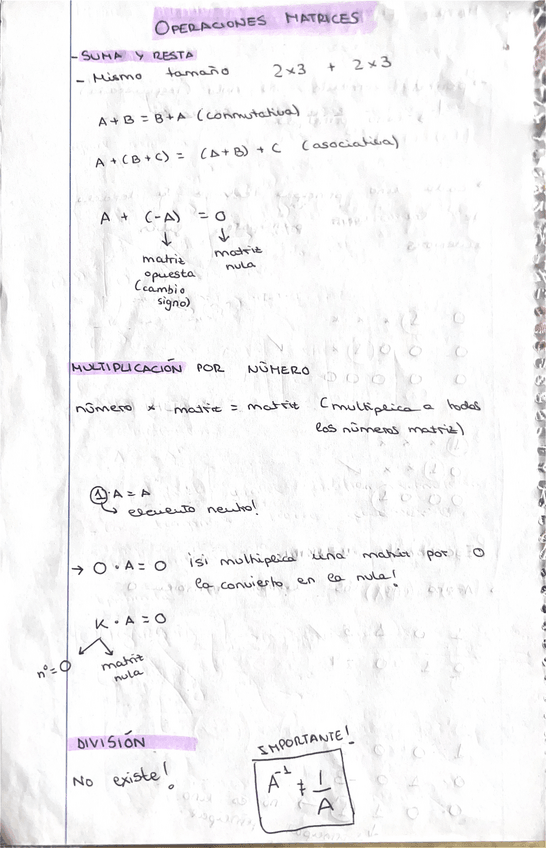 OPERACIONES MATRICES
- SUMA Y RESTA
- Mismo tamaño 2x3 + 2x3
A+B = B+A (conmutativa)
A+(B+C) = (A+B)+C (asociativa)
A + (-A) = 0
↓ ↓
matriz opuesta (cambio signo)
matriz nula
MULTIPLICACIÓN POR NÚMERO
número x matriz = matriz (multiplica a todos
los números matriz)
①·A = A
↳ elemento neutro!
→ 0 · A = 0 ¡si multiplica una matriz por 0
la convierto en la nula!
K · A = 0
nº=0 matriz nula
DIVISIÓN
No existe!
IMPORTANTE!
A⁻¹ ≠ 1/A